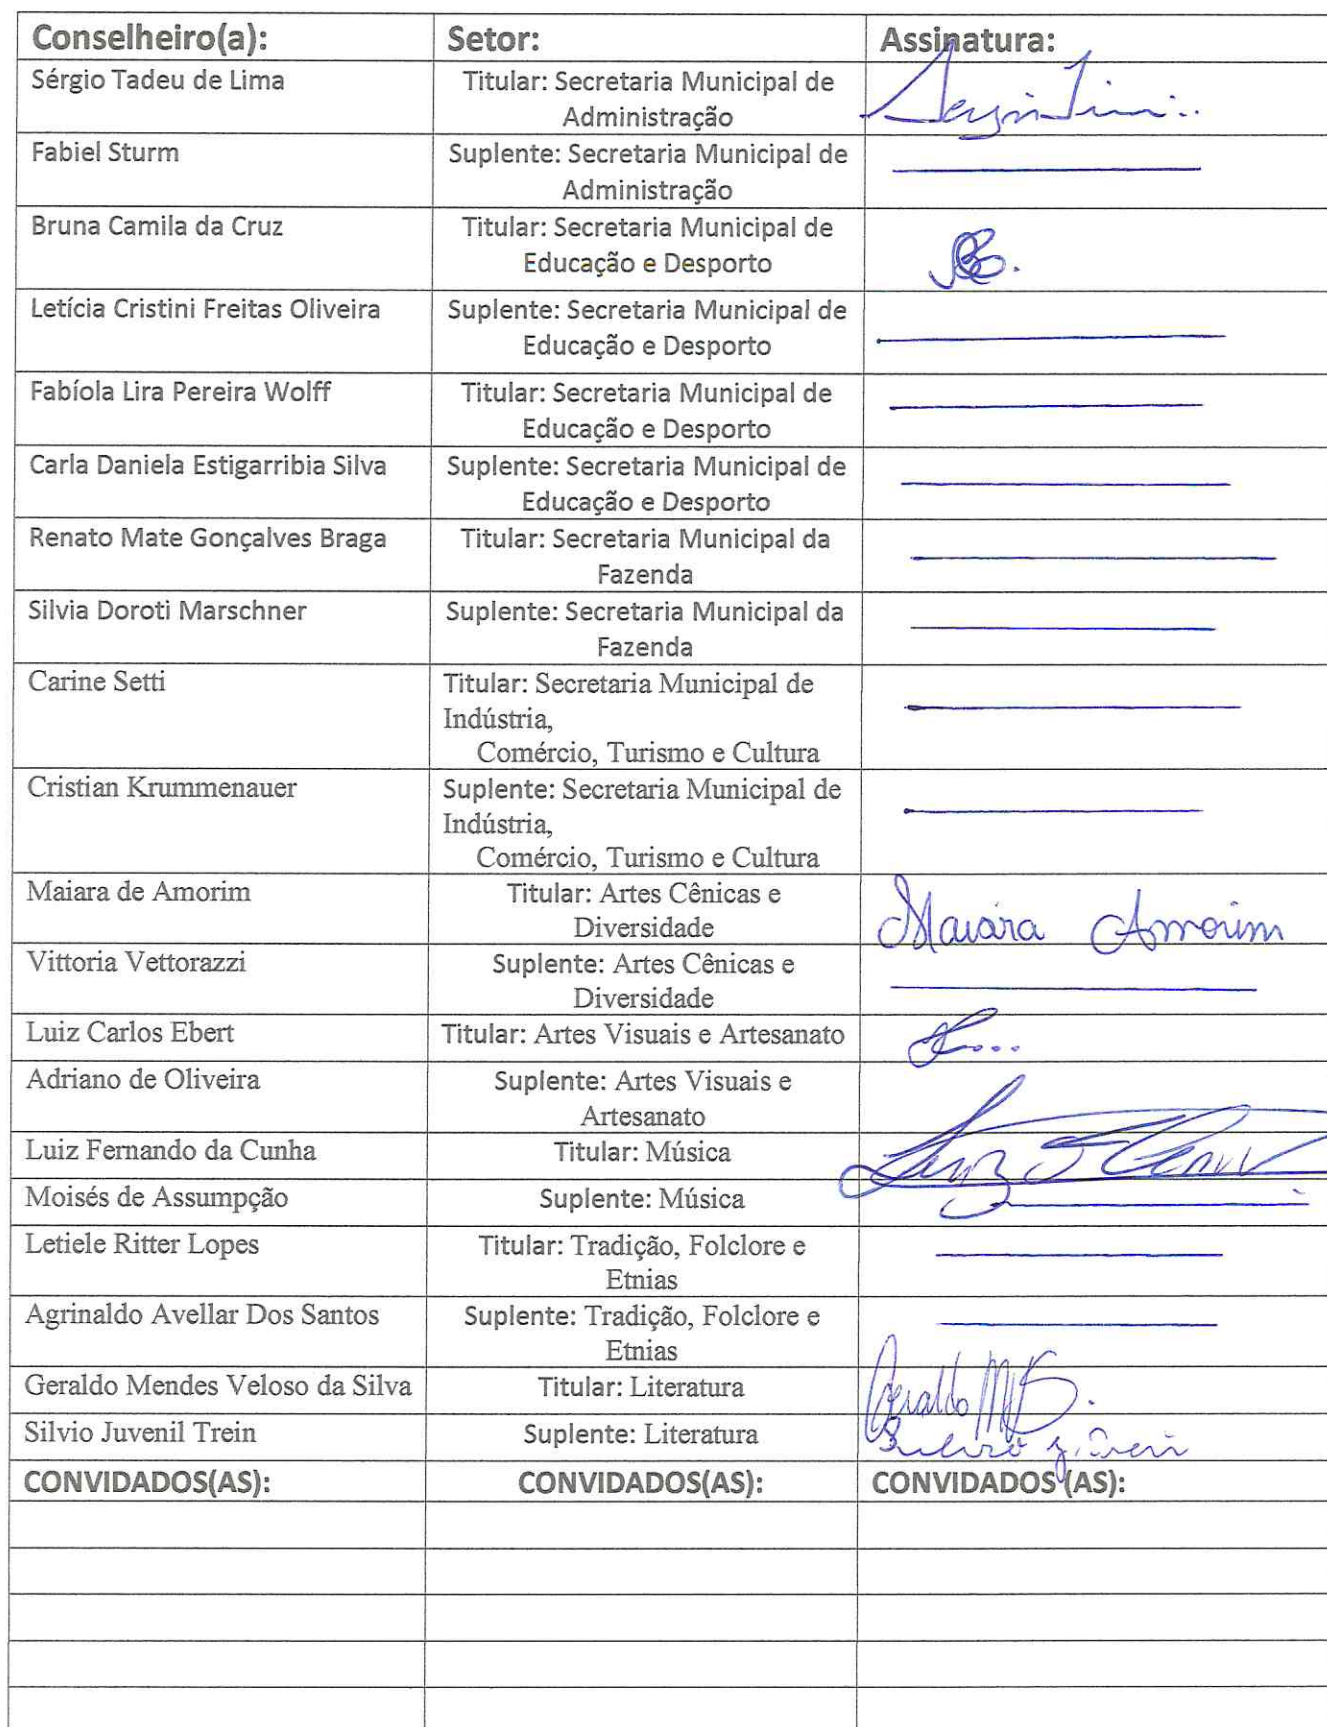 Conselheiro(a): Setor: Assinatura:
Sérgio Tadeu de Lima Titular: Secretaria Municipal de
Administração
Fabiel Sturm Suplente: Secretaria Municipal de
Administração
Bruna Camila da Cruz Titular: Secretaria Municipal de
Educação e Desporto
Letícia Cristini Freitas Oliveira Suplente: Secretaria Municipal de
Educação e Desporto
Fabíola Lira Pereira Wolff Titular: Secretaria Municipal de
Educação e Desporto
Carla Daniela Estigarribia Silva Suplente: Secretaria Municipal de
Educação e Desporto
Renato Mate Gonçalves Braga Titular: Secretaria Municipal da
Fazenda
Silvia Doroti Marschner Suplente: Secretaria Municipal da
Fazenda
Carine Setti Titular: Secretaria Municipal de
Indústria,
Comércio, Turismo e Cultura
Cristian Krummenauer Suplente: Secretaria Municipal de
Indústria,
Comércio, Turismo e Cultura
Maiara de Amorim Titular: Artes Cênicas e Maiara Amorim
Diversidade
Vittoria Vettorazzi Suplente: Artes Cênicas e
Diversidade
Luiz Carlos Ebert Titular: Artes Visuais e Artesanato
Adriano de Oliveira Suplente: Artes Visuais e
Artesanato
Luiz Fernando da Cunha Titular: Música
Moisés de Assumpção Suplente: Música
Letiele Ritter Lopes Titular: Tradição, Folclore e
Etnias
Agrinaldo Avellar Dos Santos Suplente: Tradição, Folclore e
Etnias
Geraldo Mendes Veloso da Silva Titular: Literatura Geraldo
Silvio Juvenil Trein Suplente: Literatura
CONVIDADOS(AS): CONVIDADOS(AS): CONVIDADOS(AS):